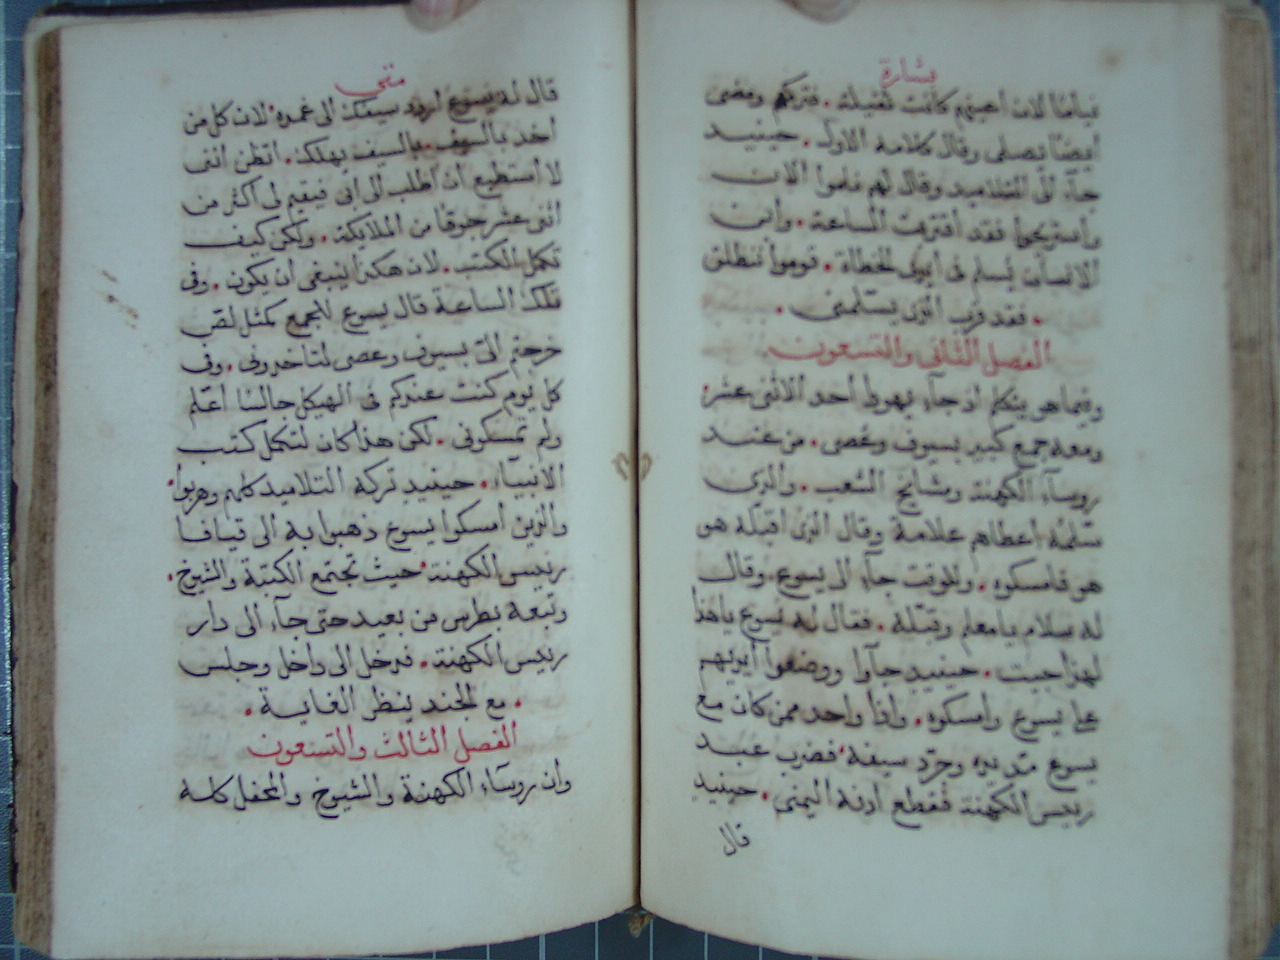 بشارة
نياما لان اعينهم كانت ثقيلة. فتركهم ومضى
ايضا يصلى وقال كلامه الاول. حينيد
جآء الى التلاميد وقال لهم ناموا الان
واستريحوا فقد اقتربت الساعة. وابن
الانسان يسلم فى ايدى الخطاة. قوموا ننطلق
. فقد قرب الذى يسلمنى .
الفصل الثانى والتسعون
وفيما هو يتكلم اذ جآء يهودا احد الاثنى عشر.
ومعه جمع كبير بسيوف وعصى. من عند
روسآء الكهنة ومشايخ الشعب. والذى
سلمه اعطاهم علامة وقال الذى اقبله هو
هو فامسكوه. وللوقت جآء الى يسوع وقال
له سلام يا معلم وقبّله. فقال له يسوع ياهذا
لهذا جيت. حينيد جآوا ووضعوا أيديهم
على يسوع وامسكوه. واذا واحد ممن كان مع
يسوع مد يده وجرّد سيفه. فضرب عبد
رييس الكهنة فقطع ادنه اليمنى. حينيد
قال
متى
قال له يسوع اردد سيفك الى غمده. لان كل من
اخد بالسيف. بالسيف يهلك. اتظن اننى
لا استطيع ان اطلب الى ابى فيقيم لى اكثر من
اثنى عشر جوقا من الملايكة. ولكن كيف
تكمل الكتب. لان هكذا ينبغى ان يكون. وفى
تلك الساعة قال يسوع للجمع كمثل لص
خرجتم الىّ بسيوف وعصى لتاخدونى. وفى
كل يوم كنت عندكم فى الهيكل جالسا أعلّم
ولم تمسكونى. لكن هذا كان لتكمل كتب
الانبيآء. حينيد تركه التلاميد كلهم وهربوا.
والذين امسكوا يسوع ذهبوا به الى قيافا
رييس الكهنة. حيث تجتمع الكتبة والشيوخ.
وتبعه بطرس من بعيد حتى جآء الى دار
رييس الكهنة. فدخل الى داخل وجلس
. مع الجند ينظر الغاية .
الفصل الثالث والتسعون
وان روسآء الكهنة والشيوخ والمحفل كله